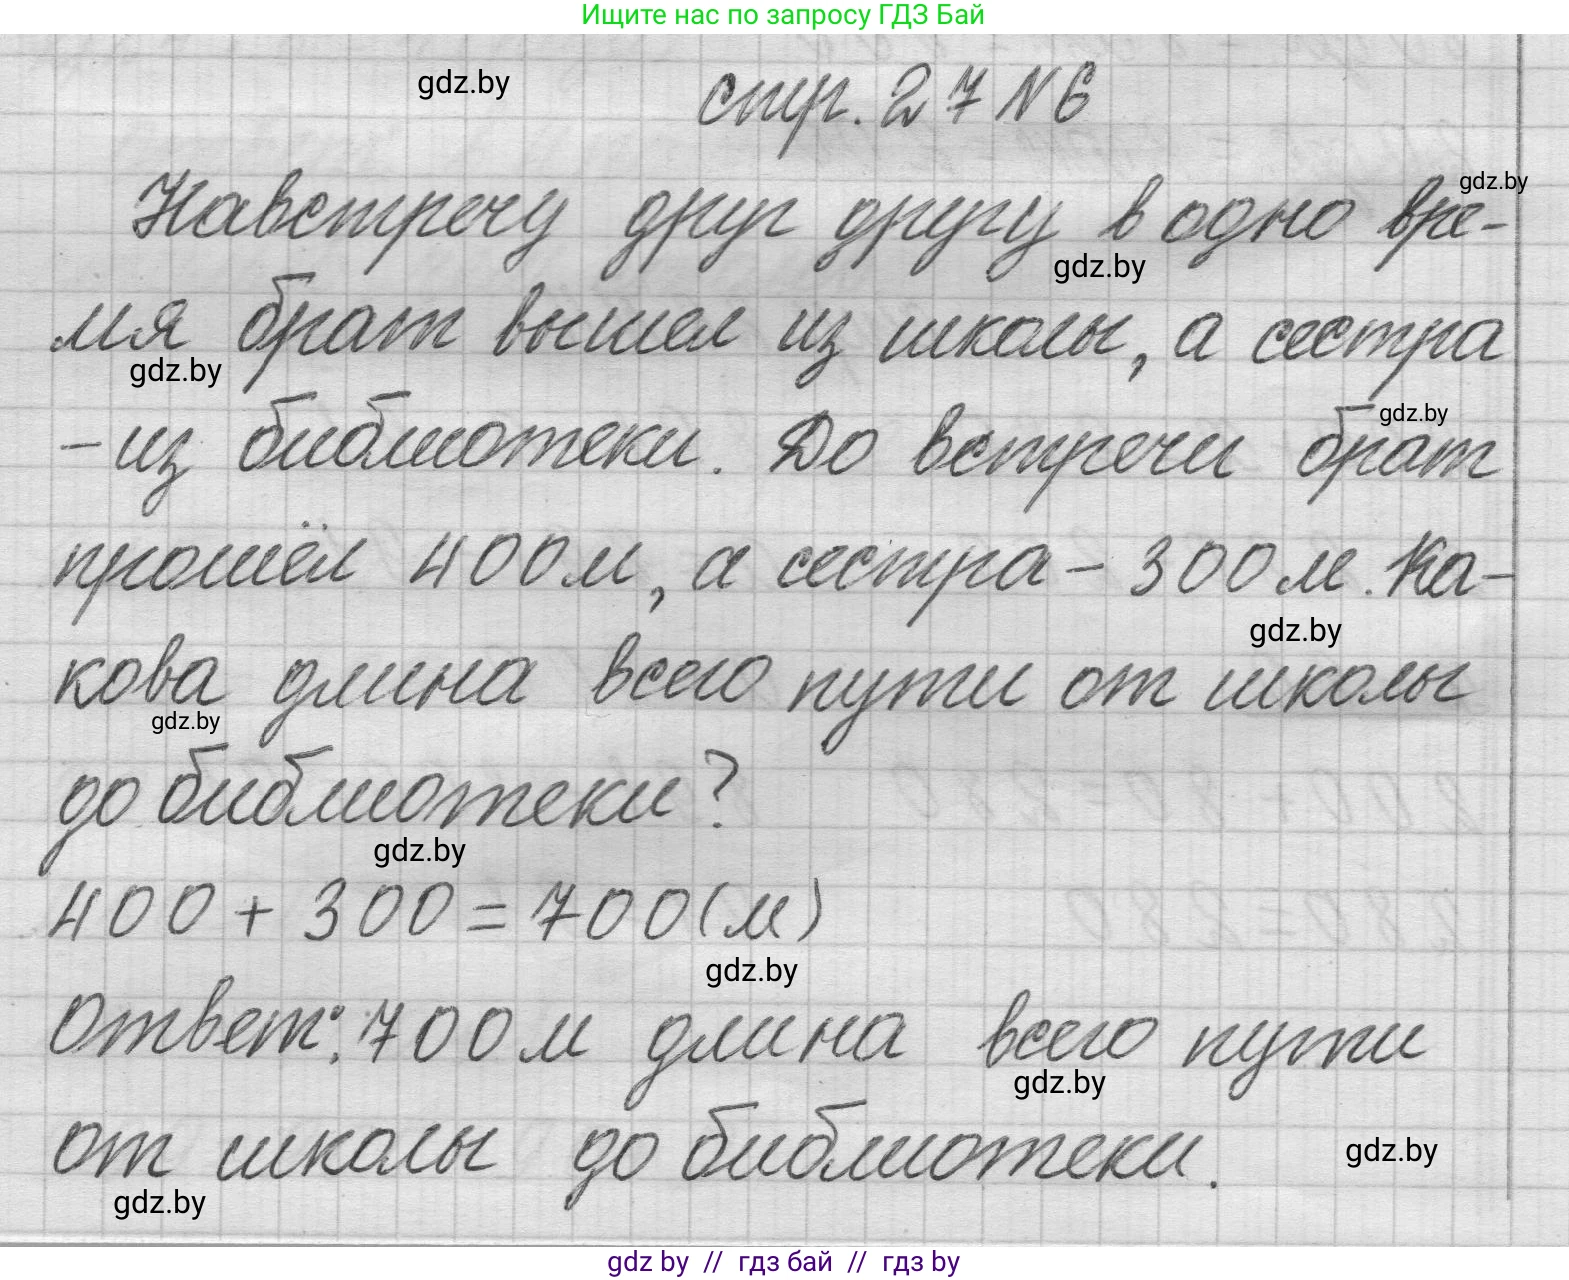 Ищите нас по запросу ГДЗ Бай
gdz.by
стр. 27 N 6
gdz.by
Навстречу друг другу в одно вре-
gdz.by
мя брат вышел из школы, а сестра
gdz.by
gdz.by
- из библиотеки. До встречи брат
прошёл 400 м, а сестра - 300 м. Ка-
gdz.by
кова длина всего пути от школы
gdz.by
до библиотеки?
gdz.by
400 + 300 = 700 (м)
gdz.by
Ответ: 700 м длина всего пути
gdz.by
от школы до библиотеки.
gdz.by
gdz.by
gdz by // гдз бай // гдз by